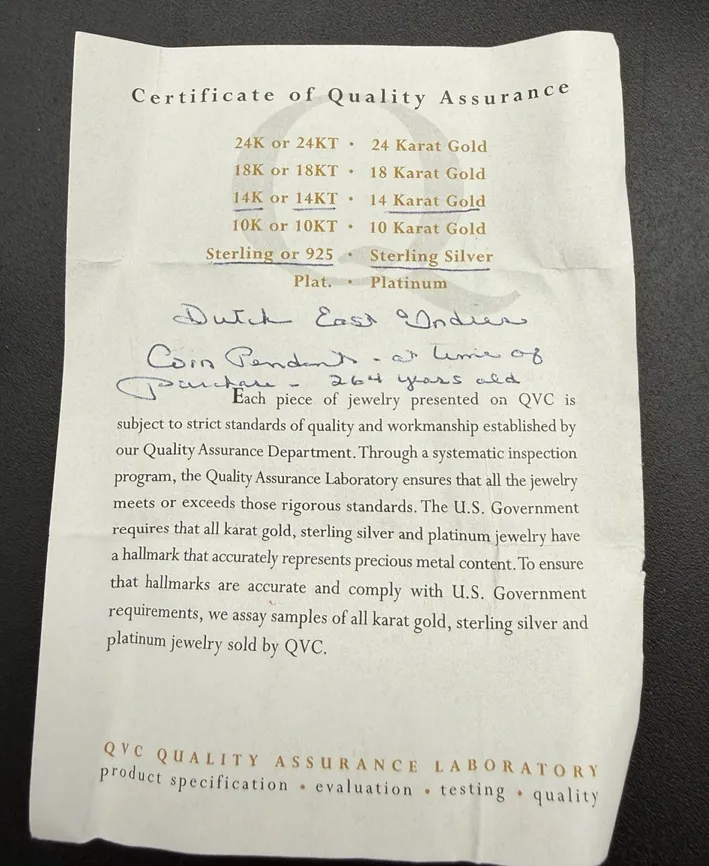 Certificate of Quality Assurance
24K or 24KT • 24 Karat Gold
18K or 18KT • 18 Karat Gold
14K or 14KT • 14 Karat Gold
10K or 10KT • 10 Karat Gold
Sterling or 925 • Sterling Silver
Plat. • Platinum
Dutch East Indies
Coin Pendant - at time of
purchase - 264 years old
Each piece of jewelry presented on QVC is
subject to strict standards of quality and workmanship established by
our Quality Assurance Department. Through a systematic inspection
program, the Quality Assurance Laboratory ensures that all the jewelry
meets or exceeds those rigorous standards. The U.S. Government
requires that all karat gold, sterling silver and platinum jewelry have
a hallmark that accurately represents precious metal content. To ensure
that hallmarks are accurate and comply with U.S. Government
requirements, we assay samples of all karat gold, sterling silver and
platinum jewelry sold by QVC.
QVC QUALITY ASSURANCE LABORATORY
product specification • evaluation • testing • quality